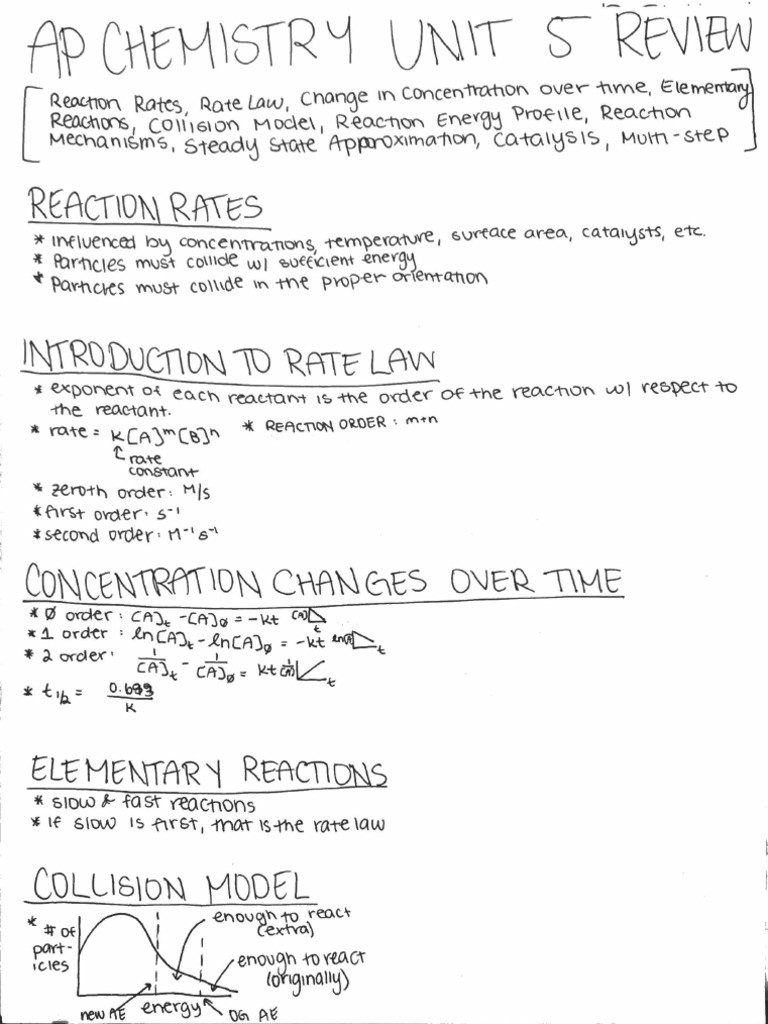 AP CHEMISTRY UNIT 5 REVIEW
[Reaction Rates, Rate Law, Change in Concentration over time, Elementary
Reactions, Collision Model, Reaction Energy Profile, Reaction
Mechanisms, Steady State Approximation, Catalysis, Multi-step]
REACTION RATES
* influenced by concentrations, temperature, surface area, catalysts, etc.
* Particles must collide w/ sufficient energy
* Particles must collide in the proper orientation
INTRODUCTION TO RATE LAW
* exponent of each reactant is the order of the reaction w/ respect to
the reactant.
* rate = k[A]ᵐ[B]ⁿ * REACTION ORDER : m+n
rate
constant
* zeroth order: M/s
* first order: s⁻¹
* second order: M⁻¹s⁻¹
CONCENTRATION CHANGES OVER TIME
* Ø order: [A]t - [A]Ø = -kt [A] t
* 1 order : ln[A]t - ln[A]Ø = -kt ln[A] t
* 2 order: 1/[A]t - 1/[A]Ø = kt 1/[A] t
* t1/2 = 0.693/k
ELEMENTARY REACTIONS
* slow & fast reactions
* If slow is first, that is the rate law
COLLISION MODEL
* # of
part-
icles
enough to react
(extra)
enough to react
(originally)
new AE energy OG AE